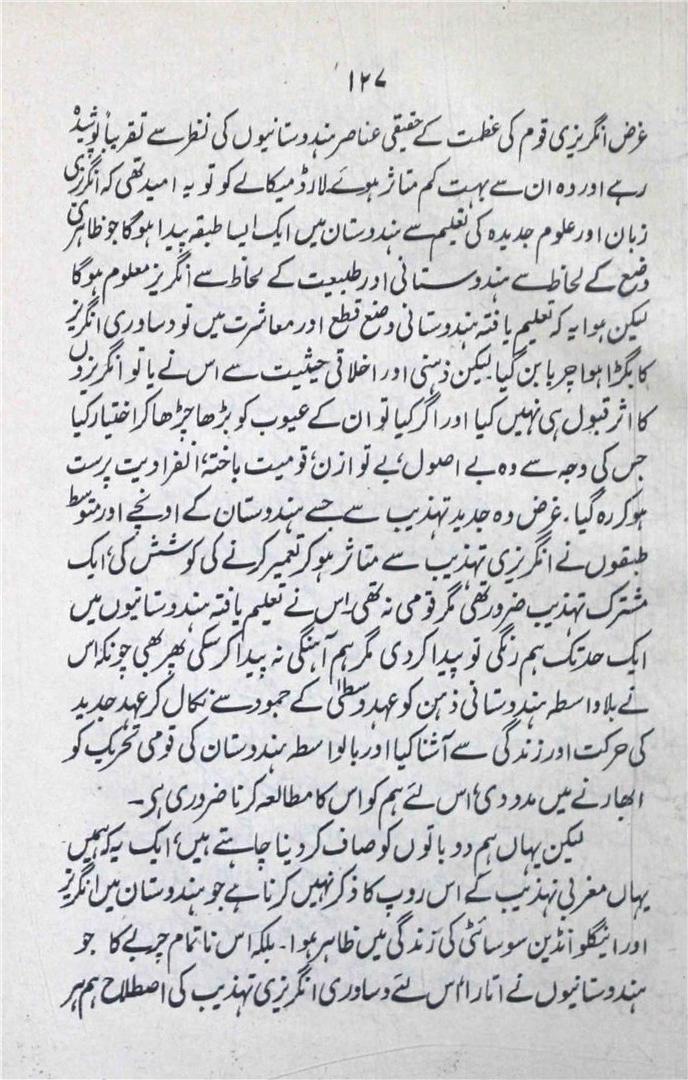 ۱۲۷
غرض انگریزی قوم کی عظمت کے حقیقی عناصر ہندوستانیوں کی نظر سے تقریباً پوشیدہ
رہے اور وہ ان سے بہت کم متاثر ہوئے لارڈ میکالے کو تو یہ امید تھی کہ انگریزی
زبان اور علوم جدیدہ کی تعلیم سے ہندوستان میں ایک ایسا طبقہ پیدا ہوگا جو ظاہری
وضع کے لحاظ سے ہندوستانی اور طبیعت کے لحاظ سے انگریز معلوم ہوگا
لیکن ہوا یہ کہ تعلیم یافتہ ہندوستانی وضع قطع اور معاشرت میں تو دساوری انگریز
کا بگڑا ہوا چربا بن گیا لیکن ذہنی اور اخلاقی حیثیت سے اس نے یا تو انگریزوں
کا اثر قبول ہی نہیں کیا اور اگر کیا تو ان کے عیوب کو بڑھا چڑھا کر اختیار کیا
جس کی وجہ سے وہ بے اصول، بے توازن، قومیت باختہ، انفرادیت پرست
ہو کر رہ گیا۔ غرض وہ جدید تہذیب سے جسے ہندوستان کے اونچے اور متوسط
طبقوں نے انگریزی تہذیب سے متاثر ہو کر تعمیر کرنے کی کوشش کی، ایک
مشترک تہذیب ضرور تھی مگر قومی نہ تھی۔ اس نے تعلیم یافتہ ہندوستانیوں میں
ایک حد تک ہم رنگی تو پیدا کر دی مگر ہم آہنگی نہ پیدا کر سکی پھر بھی چونکہ اس
نے بلا واسطہ ہندوستانی ذہن کو عہد وسطیٰ کے جمود سے نکال کر عہد جدید
کی حرکت اور زندگی سے آشنا کیا اور بالواسطہ ہندوستان کی قومی تحریک کو
ابھارنے میں مدد دی، اس لئے ہم کو اس کا مطالعہ کرنا ضروری ہی۔
لیکن یہاں ہم دو باتوں کو صاف کر دینا چاہتے ہیں، ایک یہ کہ ہمیں
یہاں مغربی تہذیب کے اس روپ کا ذکر نہیں کرنا ہے جو ہندوستان میں انگریز
اور اینگلو انڈین سوسائٹی کی زندگی میں ظاہر ہوا۔ بلکہ اس ناتمام چربے کا جو
ہندوستانیوں نے اتارا اس لئے دساوری انگریزی تہذیب کی اصطلاح ہم ہر